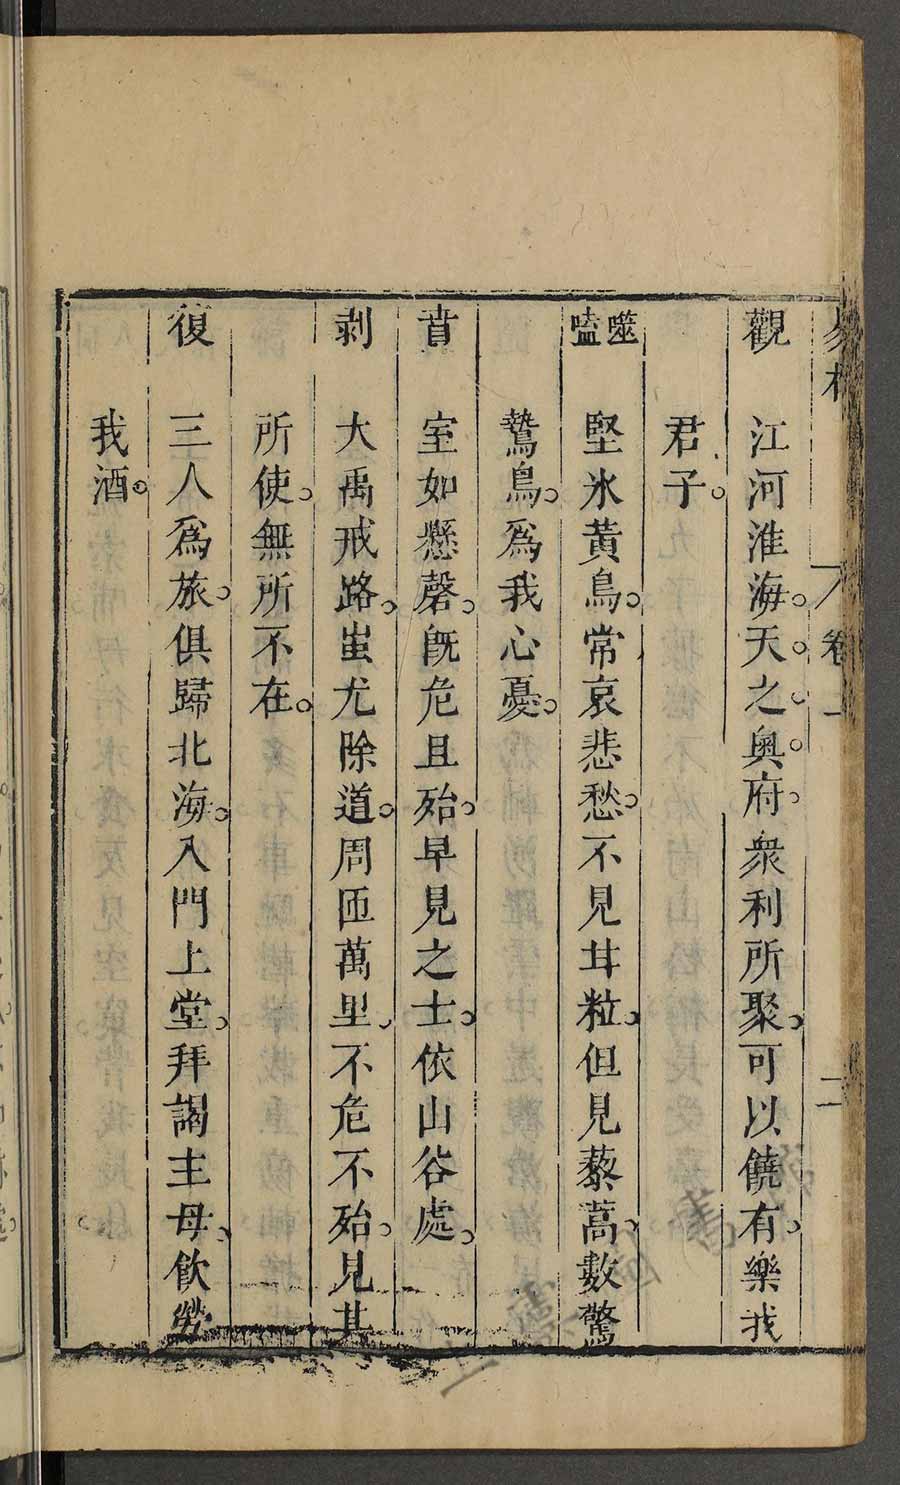 易林 卷一 二
觀 江河淮海。天之奧府。衆利所聚。可以饒有。樂我
君子。
噬嗑 堅氷黃鳥。常哀悲愁。不見甘粒。但見藜蒿。數驚
鷙鳥。爲我心憂。
賁 室如懸磬。旣危且殆。早見之士。依山谷處。
剥 大禹戒路。蚩尤除道。周匝萬里。不危不殆。見其
所使。無所不在。
復 三人爲旅。俱歸北海。入門上堂。拜謁主母。飮勞
我酒。